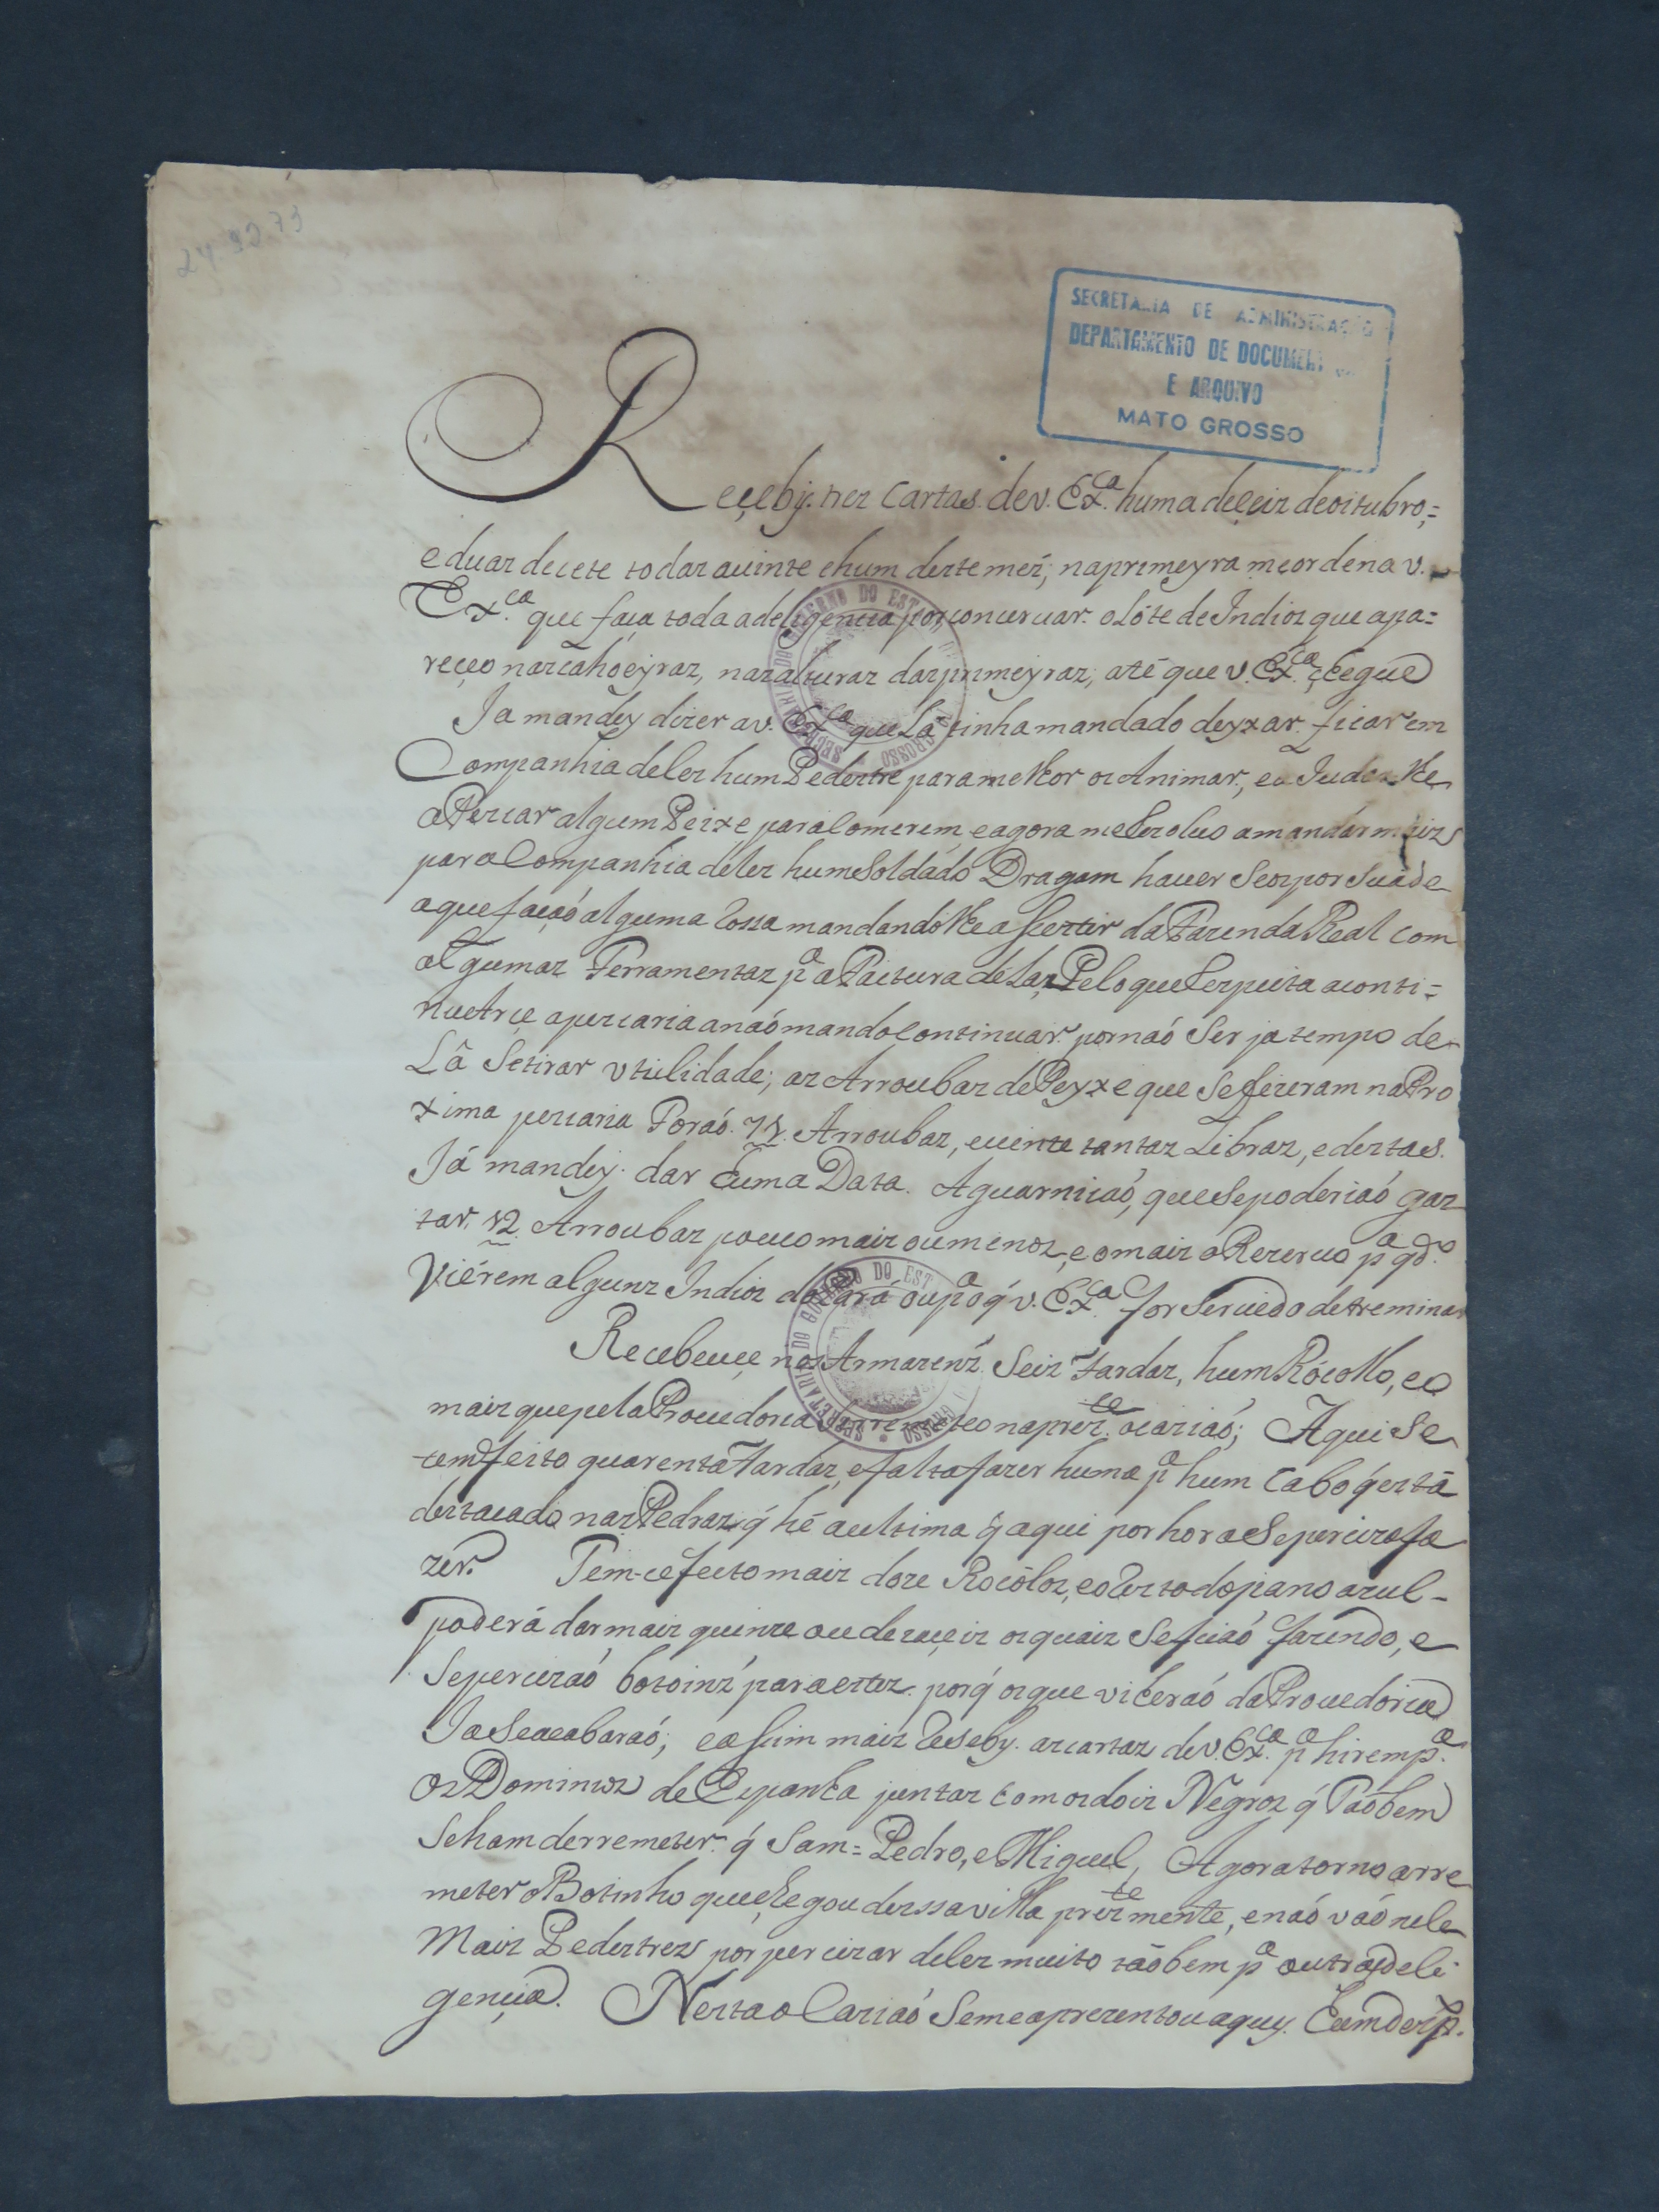 24.90.73
SECRETARIA DE ADMINISTRAÇÃO
DEPARTAMENTO DE DOCUMENT
E ARQUIVO
MATO GROSSO
Reçebÿ. tres Cartas. de v. Ex.ca huma deçeis deoitubro,=
e duas decete todas avinte ehum destemes; naprimeyra meordena v.
Ex.ca que faça toda adeligencia por concervar. o Lóte de Indios que apa=
reçeo nascahoeyras, nasalturas dasprimeyras; até que v. Ex.ca chegue
Ja mandey dizer av. Ex.ca que Lá tinha mandado deyxar. ficar em
Companhia deles hum Pedestre para melhor os Animar, e aJudarlhe
a Pescar algum Peixe para Comerem, e agora me Rezolvo amandár mais
para Companhia deles hum Soldádo Dragam haver Seos porSuáde
aquefação alguma Rossa mandandolhe assestir da Fazenda Real com
algumas Ferramentas p.a a Factura delas, Pelo que Respeita aconti=
nuArce apescaria anaó mando Continuar. pornaó Ser ja tempo de
Lâ Setirar utilidade; as Arroubas de Peyxe que Se fizeram na Pro
xima pescaria Foraó. 78. Arroubas, evinte tantas Libras, edestas.
Já mandey. dar huma Data. Aguarniçaó, que Sepoderiaó gas
tar. 12. Arroubas pouco mais oumenos, eomais o Rezervo p.a qd.o
Viérem alguns Indios do Pará oup.a o q̃ v. Ex.ca for Servido detreminar
Recebeuçe nos Armazens. Seis Fardas, hum Rócollo, eo
mais quepela Provedoria Se rremeteo naprez.te ocaziaó; Aqui Se
temfeito quarenta Fardas, efalta fazer huma p.a hum Cabo q̃está
destacado nas Pedras q̃ hé aultima q̃ aqui por hora Seperciza fa
zer. Tem-ce feito mais doze Rocólos, eo Resto do pano azul-
poderá dar mais quinze ou dezaçeis os quais Seficaó fazendo, e
Sepercizaó botoins para estes. porq̃ osque vieraó da Provedoria
Ja Seacabaraó; eassim mais Resebÿ. as cartas de v. Ex.ca p.a hirem p.a
Os Dominios de Espanha juntas Com os dois Negros q̃ Taóbem
Seham derremeter. q̃ Sam= Pedro, e Miguel, Agora torno arre
meter o Botinho que chegou dessa villa prez.te mente, enaó vaó nele
Mais Pedestres por percizar deles muito taóbem p.a outra deli-
gençia. Nesta o Caziaó Semeaprezentou aquy. hum desp.